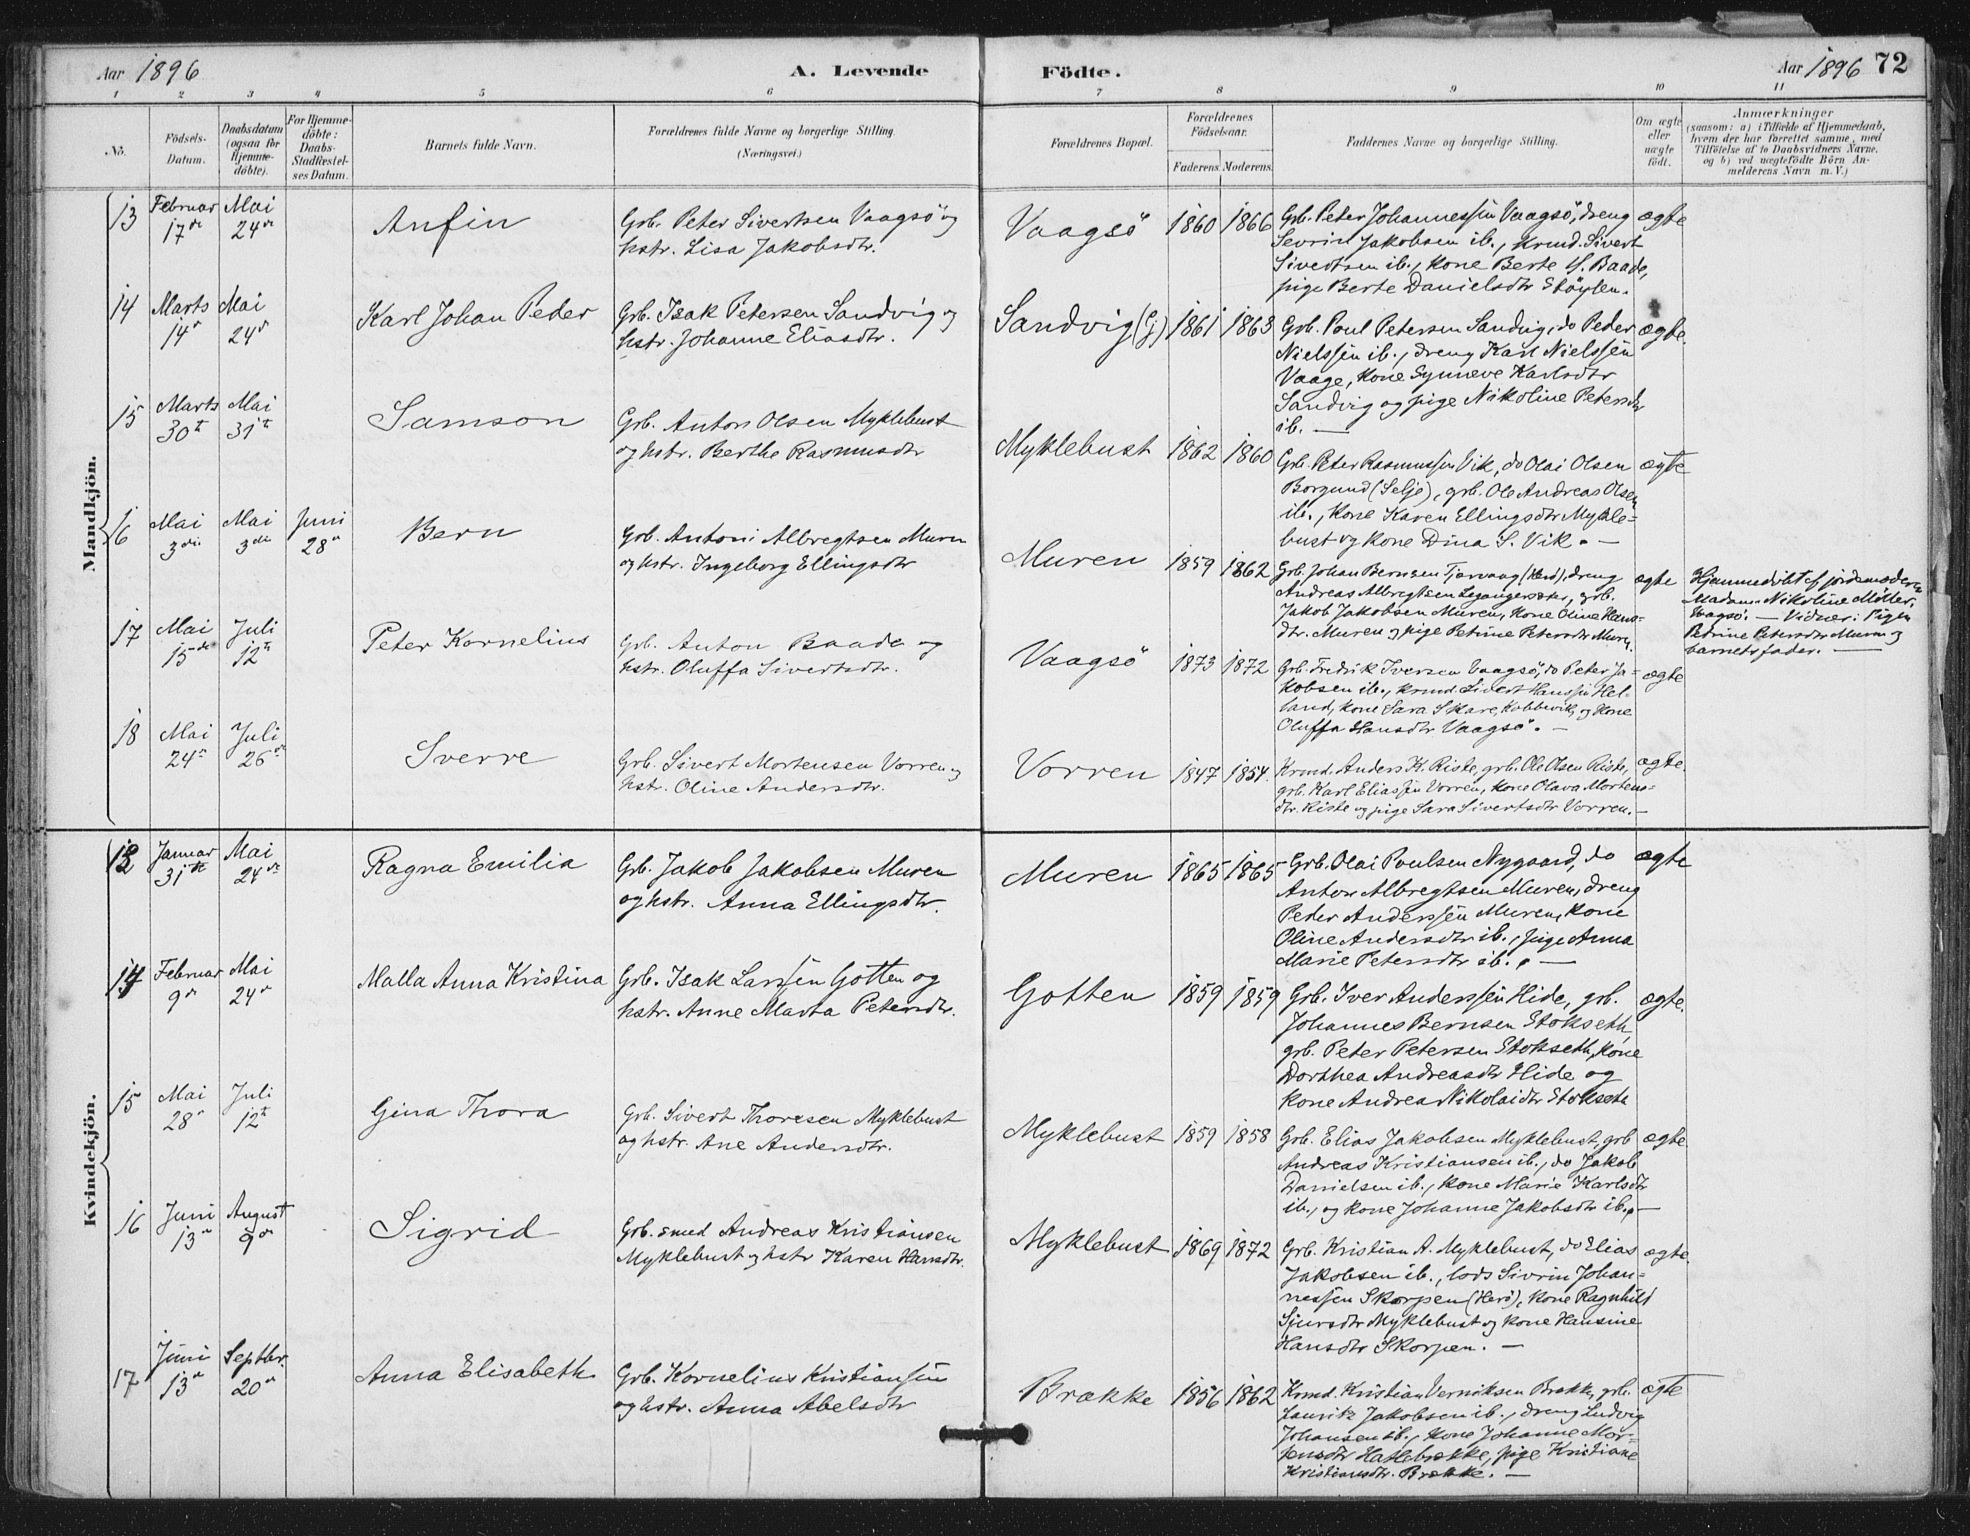 Aar 1896 A. Levende Födte. Aar 1896 72
1 2 3 4 5 6 7 8 9 10 11
No.
Födsels-Datum.
Daabsdatum (ogsaa för Hjemme-döbte).
For Hjemme-döbte: Daabs-Stadfæstel-ses Datum.
Barnets fulde Navn.
Forældrenes fulde Navne og borgerlige Stilling.
(Næringsvei.)
Forældrenes Bopæl.
Forældrenes Födselsaar.
Faderens. Moderens.
Faddernes Navne og borgerlige Stilling.
Om ægte eller uægte födt.
Anmærkninger
(saasom: a) i Tilfælde af Hjemmedaab, hvem der har forrettet samme, med Tilföielse af to Daabsvidners Navne, og b) ved uægtefödte Börn Anmelderens Navn m. V.)
Mandkjön.
13 Februar 17de Mai 24de
Anfin
Grb. Peter Sivertsen Vaagsö og
hstr. Lisa Jakobsdtr.
Vaagsö 1860 1866
Grb. Peter Johannessen Vaagsö, dreng
Sevrin Jakobsen ib., krmd. Sivert
Sivertsen ib., kone Berte S. Baade,
pige Berte Danielsdtr Stöylen.
ægte
14 Marts 14de Mai 24de
Karl Johan Peder
Grb. Isak Petersen Sandvig og
hstr. Johanne Eliasdtr.
Sandvig (Gj) 1861 1863
Grb. Poul Petersen Sandvig, do Peder
Nielssen ib., dreng Karl Nielssen
Vaage, kone Synneve Karlsdtr
Sandvig og pige Nikoline Petersdtr
ib. —
ægte.
15 Marts 30te Mai 31te
Samson
Grb. Anton Olsen Myklebust
og hstr. Berthe Rasmusdtr
Myklebust 1862 1860
Grb. Peter Rasmussen Vik, do Olai Olsen
Borgund (Selje), grb. Ole Andreas Olsen
ib., kone Karen Ellingsdtr Mykle=
bust og kone Dina S. Vik. —
ægte
16 Mai 3die Mai 3die Juni 28de
Bern
Grb. Antoni Albregtsen Muren
og hstr. Ingeborg Ellingsdtr
Muren 1859 1862
Grb. Johan Bernsen Tjørvaag (Herö), dreng
Andreas Albregtsen, grb.
Jakob Jakobsen Muren, kone Oline Hans=
dtr. Muren og pige Petrine Petersdtr Muren.
ægte
Hjemmedöbt af jordemoderen
Madam Nikoline Möller,
Vaagsö. — Vidner: Pigen
Petrine Petersdtr Muren og
barnets fader. —
17 Mai 15de Juli 12te
Peter Kornelius
Grb. Anton Baade og
hstr. Oluffa Sivertsdtr.
Vaagsö 1873 1872
Grb. Fredrik Iversen Vaagsö, do Peter Ja=
kobsen ib., krmd Sivert Hanssen Hel=
land, kone Sara Skare, Kobbevik, og kone
Oluffa Hansdtr Vaagsö. —
ægte
18 Mai 24de Juli 26de
Sverre
Grb. Sivert Mortensen Vorren og
hstr. Oline Andersdtr.
Vorren 1847 1854.
Krmd. Anders K. Riste, grb. Ole Olsen Riste,
grb. Karl Eliassen Vorren, kone Olava Mortens=
dtr. Riste og pige Sara Sivertsdtr Vorren. —
ægte.
Kvindekjön.
13 Januar 31te Mai 24de
Ragna Emilia
Grb. Jakob Jakobsen Muren
og hstr. Anna Ellingsdtr.
Muren 1865 1865
Grb. Olai Poulsen Nygaard, do
Anton Albregtsen Muren, dreng
Peder Anderssen Muren, kone
Oline Andersdtr ib., pige Anna
Marie Petersdtr ib. —
ægte
14 Februar 9de Mai 24de
Malla Anna Kristina
Grb. Isak Larssen Gotten og
hstr. Anne Marta Petersdtr.
Gotten 1859 1859
Grb. Iver Anderssen Hide, grb.
Johannes Bernsen Stokseth
grb. Peter Petersen Stokseth, kone
Dorthea Andreasdtr Hide og
kone Andrea Nikolaidtr Stokseth
ægte.
15 Mai 28de Juli 12te
Gina Thora
Grb. Sivert Thoresen Myklebust
og hstr. Ane Andersdtr.
Myklebust 1859 1858
Grb. Elias Jakobsen Myklebust, grb
Andreas Kristiansen ib., do Jakob
Danielsen ib., kone Marie Karlsdtr
ib., og kone Johanne Jakobsdtr ib. —
ægte
16 Juni 13de August 9de
Sigrid
Grb. smed Andreas Kristiansen
Myklebust og hstr Karen Hansdtr.
Myklebust 1869 1872
Grb. Kristian A. Myklebust, do Elias
Jakobsen ib., lods Sivrin Johan=
nessen Skorpen (Herö), kone Ragnhild
Sjursdtr Myklebust og kone Hansine
Hansdtr Skorpen. —
ægte.
17 Juni 13de Septbr. 20de
Anna Elisabeth
Grb. Kornelius Kristiansen
og hstr. Anna Abelsdtr
Brække 1856 1862
Krmd. Kristian Brække, grb.
Lauritz Jakobsen ib., dreng Ludvig
Johansen ib., kone Johanne Mor=
tensdtr Hatlebrække, pige Kristiane
Kristiansdtr. Brække. —
ægte